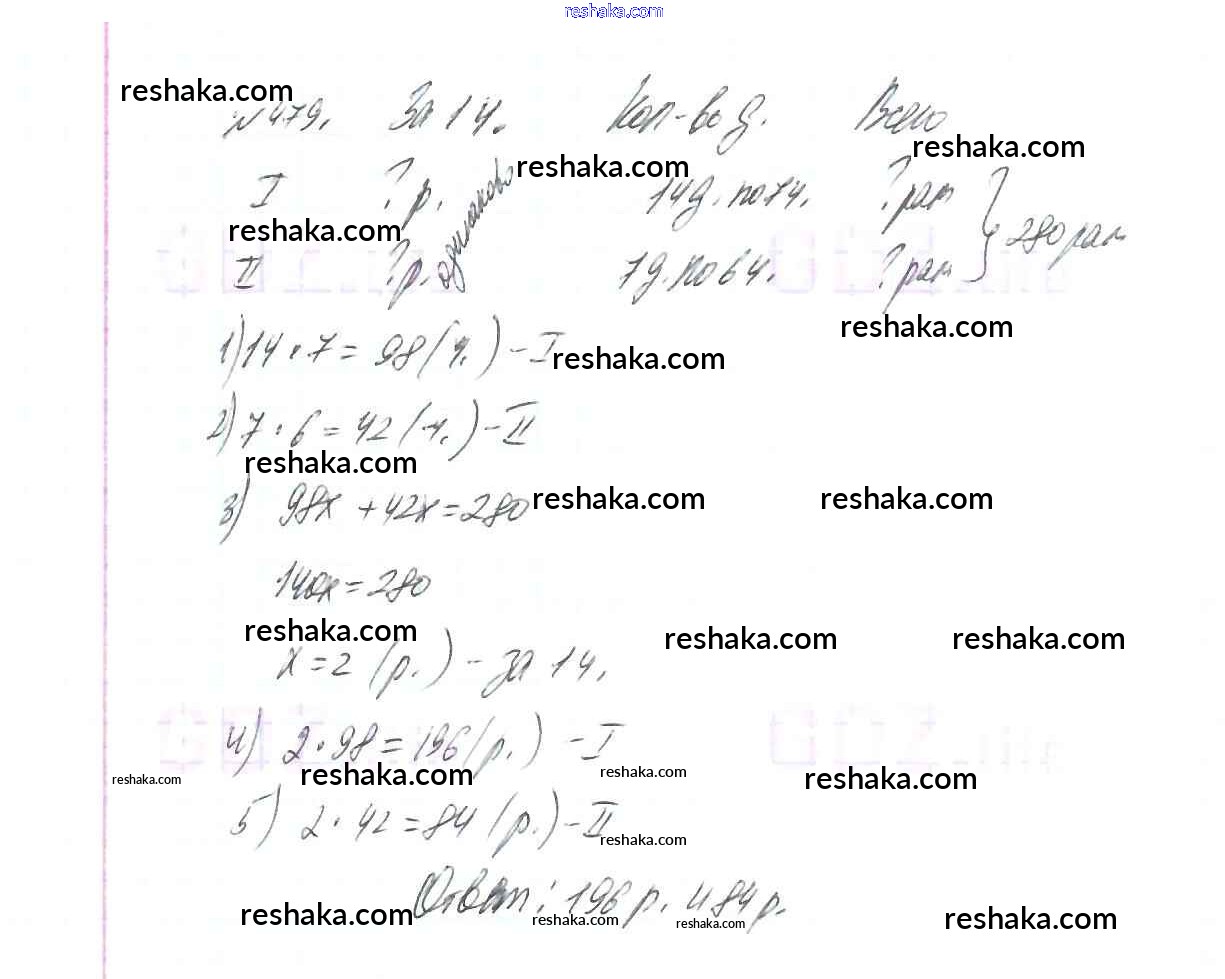 reshaka.com
reshaka.com
№479. За 1ч. Кол-во д. Всего
reshaka.com reshaka.com
I ?р. одинаково 14д. по 7ч. ?рам
reshaka.com 280 рам
II ?р. 7д. по 6ч. ?рам
reshaka.com
1) 14·7=98(ч.)-I
reshaka.com
2) 7·6=42(ч.)-II
reshaka.com
3) 98x+42x=280
reshaka.com reshaka.com
140x=280
reshaka.com reshaka.com reshaka.com
x=2(р.)-за 1ч.
4) 2·98=196(р.)-I
reshaka.com reshaka.com reshaka.com reshaka.com
5) 2·42=84(р.)-II
reshaka.com
Ответ: 196р. и 84р.
reshaka.com reshaka.com reshaka.com reshaka.com